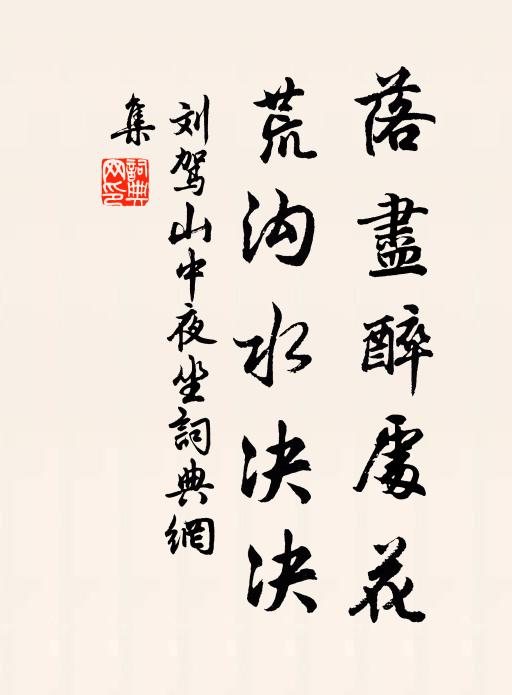 落盡醉處花
荒沟水决决
刘驾山中夜坐詞典網
集
詞典
网印